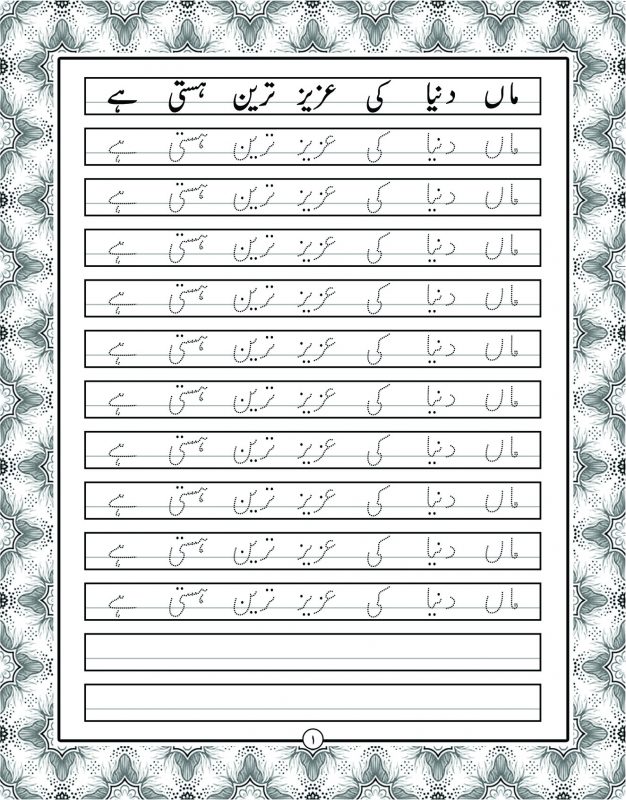 ماں دنیا کی عزیز ترین ہستی ہے
ماں دنیا کی عزیز ترین ہستی ہے
ماں دنیا کی عزیز ترین ہستی ہے
ماں دنیا کی عزیز ترین ہستی ہے
ماں دنیا کی عزیز ترین ہستی ہے
ماں دنیا کی عزیز ترین ہستی ہے
ماں دنیا کی عزیز ترین ہستی ہے
ماں دنیا کی عزیز ترین ہستی ہے
ماں دنیا کی عزیز ترین ہستی ہے
ماں دنیا کی عزیز ترین ہستی ہے
ماں دنیا کی عزیز ترین ہستی ہے
۱